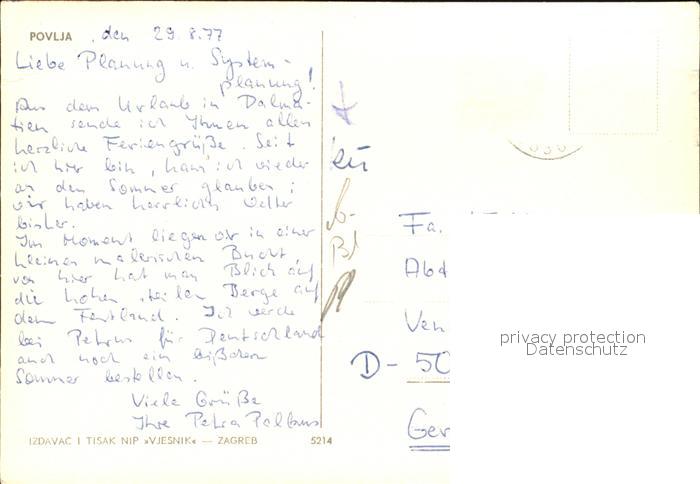 POVLJA, den 29.8.77
Liebe Planung u. System-
planung!
Aus dem Urlaub in Dalma-
tien sende ich Ihnen allen
herzliche Feriengrüße. Seit
ich hier bin, kann ich wieder
an den Sommer glauben;
wir haben herrliches Wetter
bisher.
Im Moment liegen wir in einer
kleinen malerischen Bucht,
von hier hat man Blick auf
die hohen steilen Berge auf
dem Festland. Ich werde
bei Petrus für Deutschland
auch noch ein bißchen
Sommer bestellen.
Viele Grüße
Ihre Petra
IZDAVAČ I TISAK NIP »VJESNIK« — ZAGREB 5214
Fa.
Abt
Ven
D- 50
Ger
privacy protection
Datenschutz